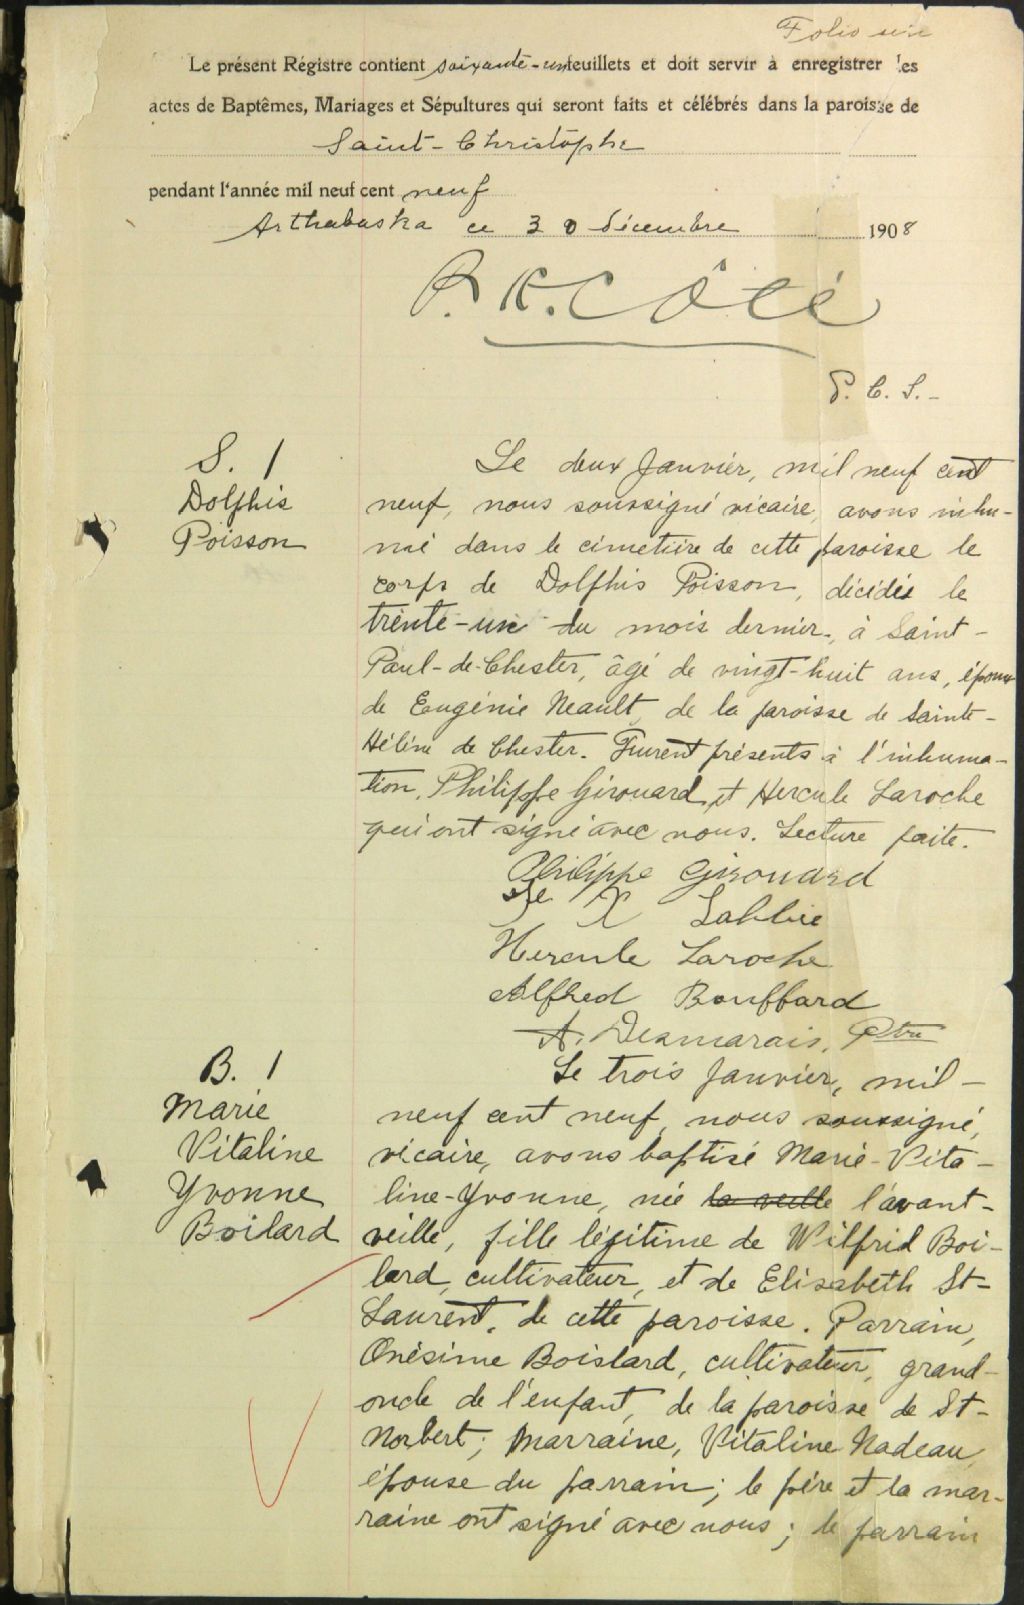 Folio un
Le présent Régistre contient soixante-un feuillets et doit servir à enregistrer les
actes de Baptêmes, Mariages et Sépultures qui seront faits et célébrés dans la paroisse de
Saint-Christophe
pendant l'année mil neuf cent neuf
Arthabaska ce 30 décembre 1908
P. R. Côté
P. C. S.-
S. 1
Dolphis
Poisson
Le deux Janvier, mil neuf cent
neuf, nous soussigné vicaire, avons inhu-
mé dans le cimetière de cette paroisse le
corps de Dolphis Poisson, décédé le
trente-un du mois dernier, à Saint-
Paul-de-Chester, âgé de vingt-huit ans, époux
de Eugénie Neault, de la paroisse de Sainte-
Hélène de Chester. Furent présents à l'inhuma-
tion, Philippe Girouard, et Hercule Laroche
qui ont signé avec nous. Lecture faite.
Philippe Girouard
X Labbie
Hercule Laroche
Alfred Bouffard
A. Desmarais, Ptre
B. 1
Marie
Vitaline
Yvonne
Boilard
Le trois Janvier, mil-
neuf cent neuf, nous soussigné,
vicaire, avons baptisé Marie-Vita-
line-Yvonne, née la veille l'avant-
veille, fille légitime de Wilfrid Boi-
lard, cultivateur, et de Elisabeth St-
Laurent, de cette paroisse. Parrain,
Onésime Boislard, cultivateur, grand-
oncle de l'enfant, de la paroisse de St-
Norbert; marraine, Vitaline Nadeau,
épouse du parrain; le père et la mar-
raine ont signé avec nous; le parrain